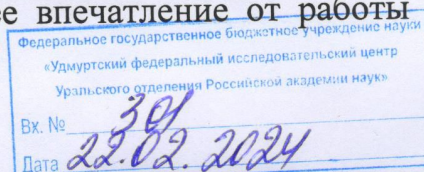 ее впечатление от работы
Федеральное государственное бюджетное учреждение науки
«Удмуртский федеральный исследовательский центр
Уральского отделения Российской академии наук»
Вх. № 301
Дата 22.02.2024